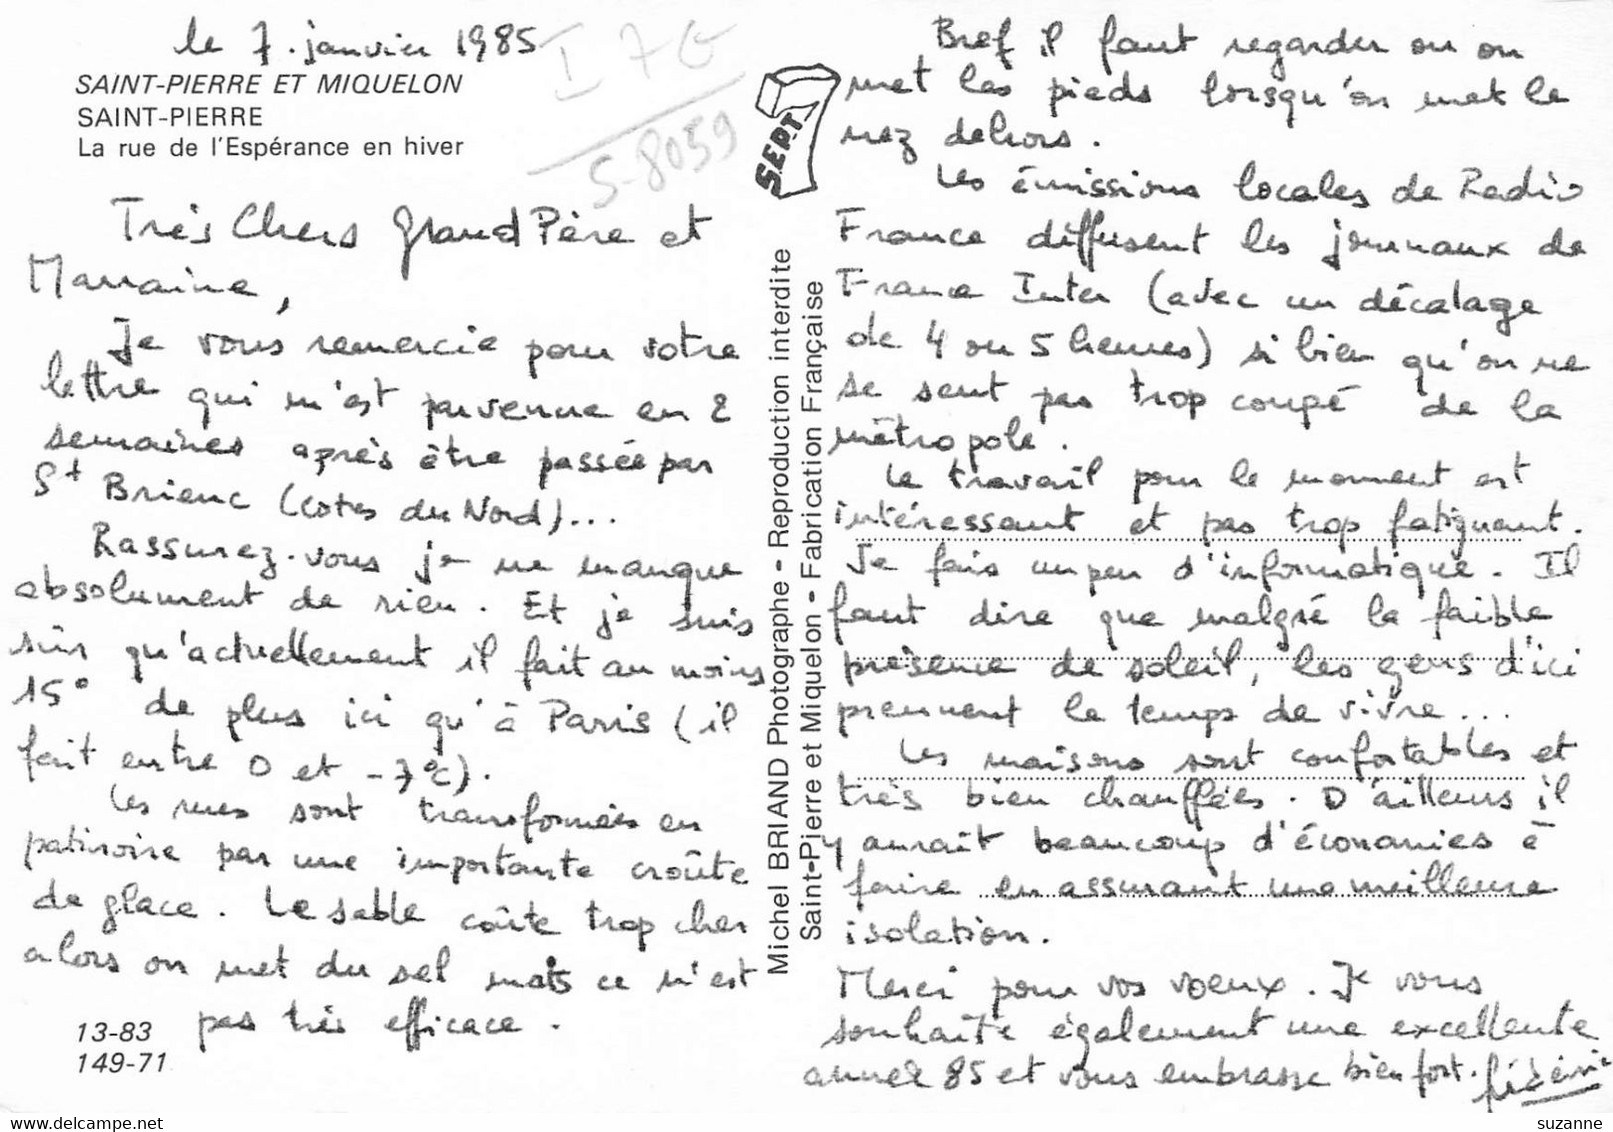 le 7. janvier 1985
SAINT-PIERRE ET MIQUELON
SAINT-PIERRE
La rue de l'Espérance en hiver
I 7 G
S-8059
SEPT
Très Chers Grand Père et
Marraine,
Je vous remercie pour votre
lettre qui m'est parvenue en 2
semaines après être passée par
St Brieuc (Cotes du Nord)...
Rassurez-vous je ne manque
absolument de rien. Et je suis
sûr qu'actuellement il fait au moins
15° de plus ici qu'à Paris (il
fait entre 0 et -7°C).
Les rues sont transformées en
patinoire par une importante croûte
de glace. Le sable coûte trop cher
alors on met du sel mais ce n'est
pas très efficace.
13-83
149-71
Michel BRIAND Photographe - Reproduction interdite
Saint-Pierre et Miquelon - Fabrication Française
Bref il faut regarder ou on
met les pieds lorsqu'on met le
nez dehors.
Les émissions locales de Radio
France diffusent les journaux de
France Inter (avec un décalage
de 4 ou 5 heures) si bien qu'on ne
se sent pas trop coupé de la
métropole.
Le travail pour le moment est
intéressant et pas trop fatiguant.
Je fais un peu d'informatique. Il
faut dire que malgré la faible
présence de soleil, les gens d'ici
prennent le temps de vivre...
Les maisons sont confortables et
très bien chauffées. D'ailleurs il
y aurait beaucoup d'économies à
faire en assurant une meilleure
isolation.
Merci pour vos voeux. Je vous
souhaite également une excellente
année 85 et vous embrasse bien fort.
www.delcampe.net
suzanne